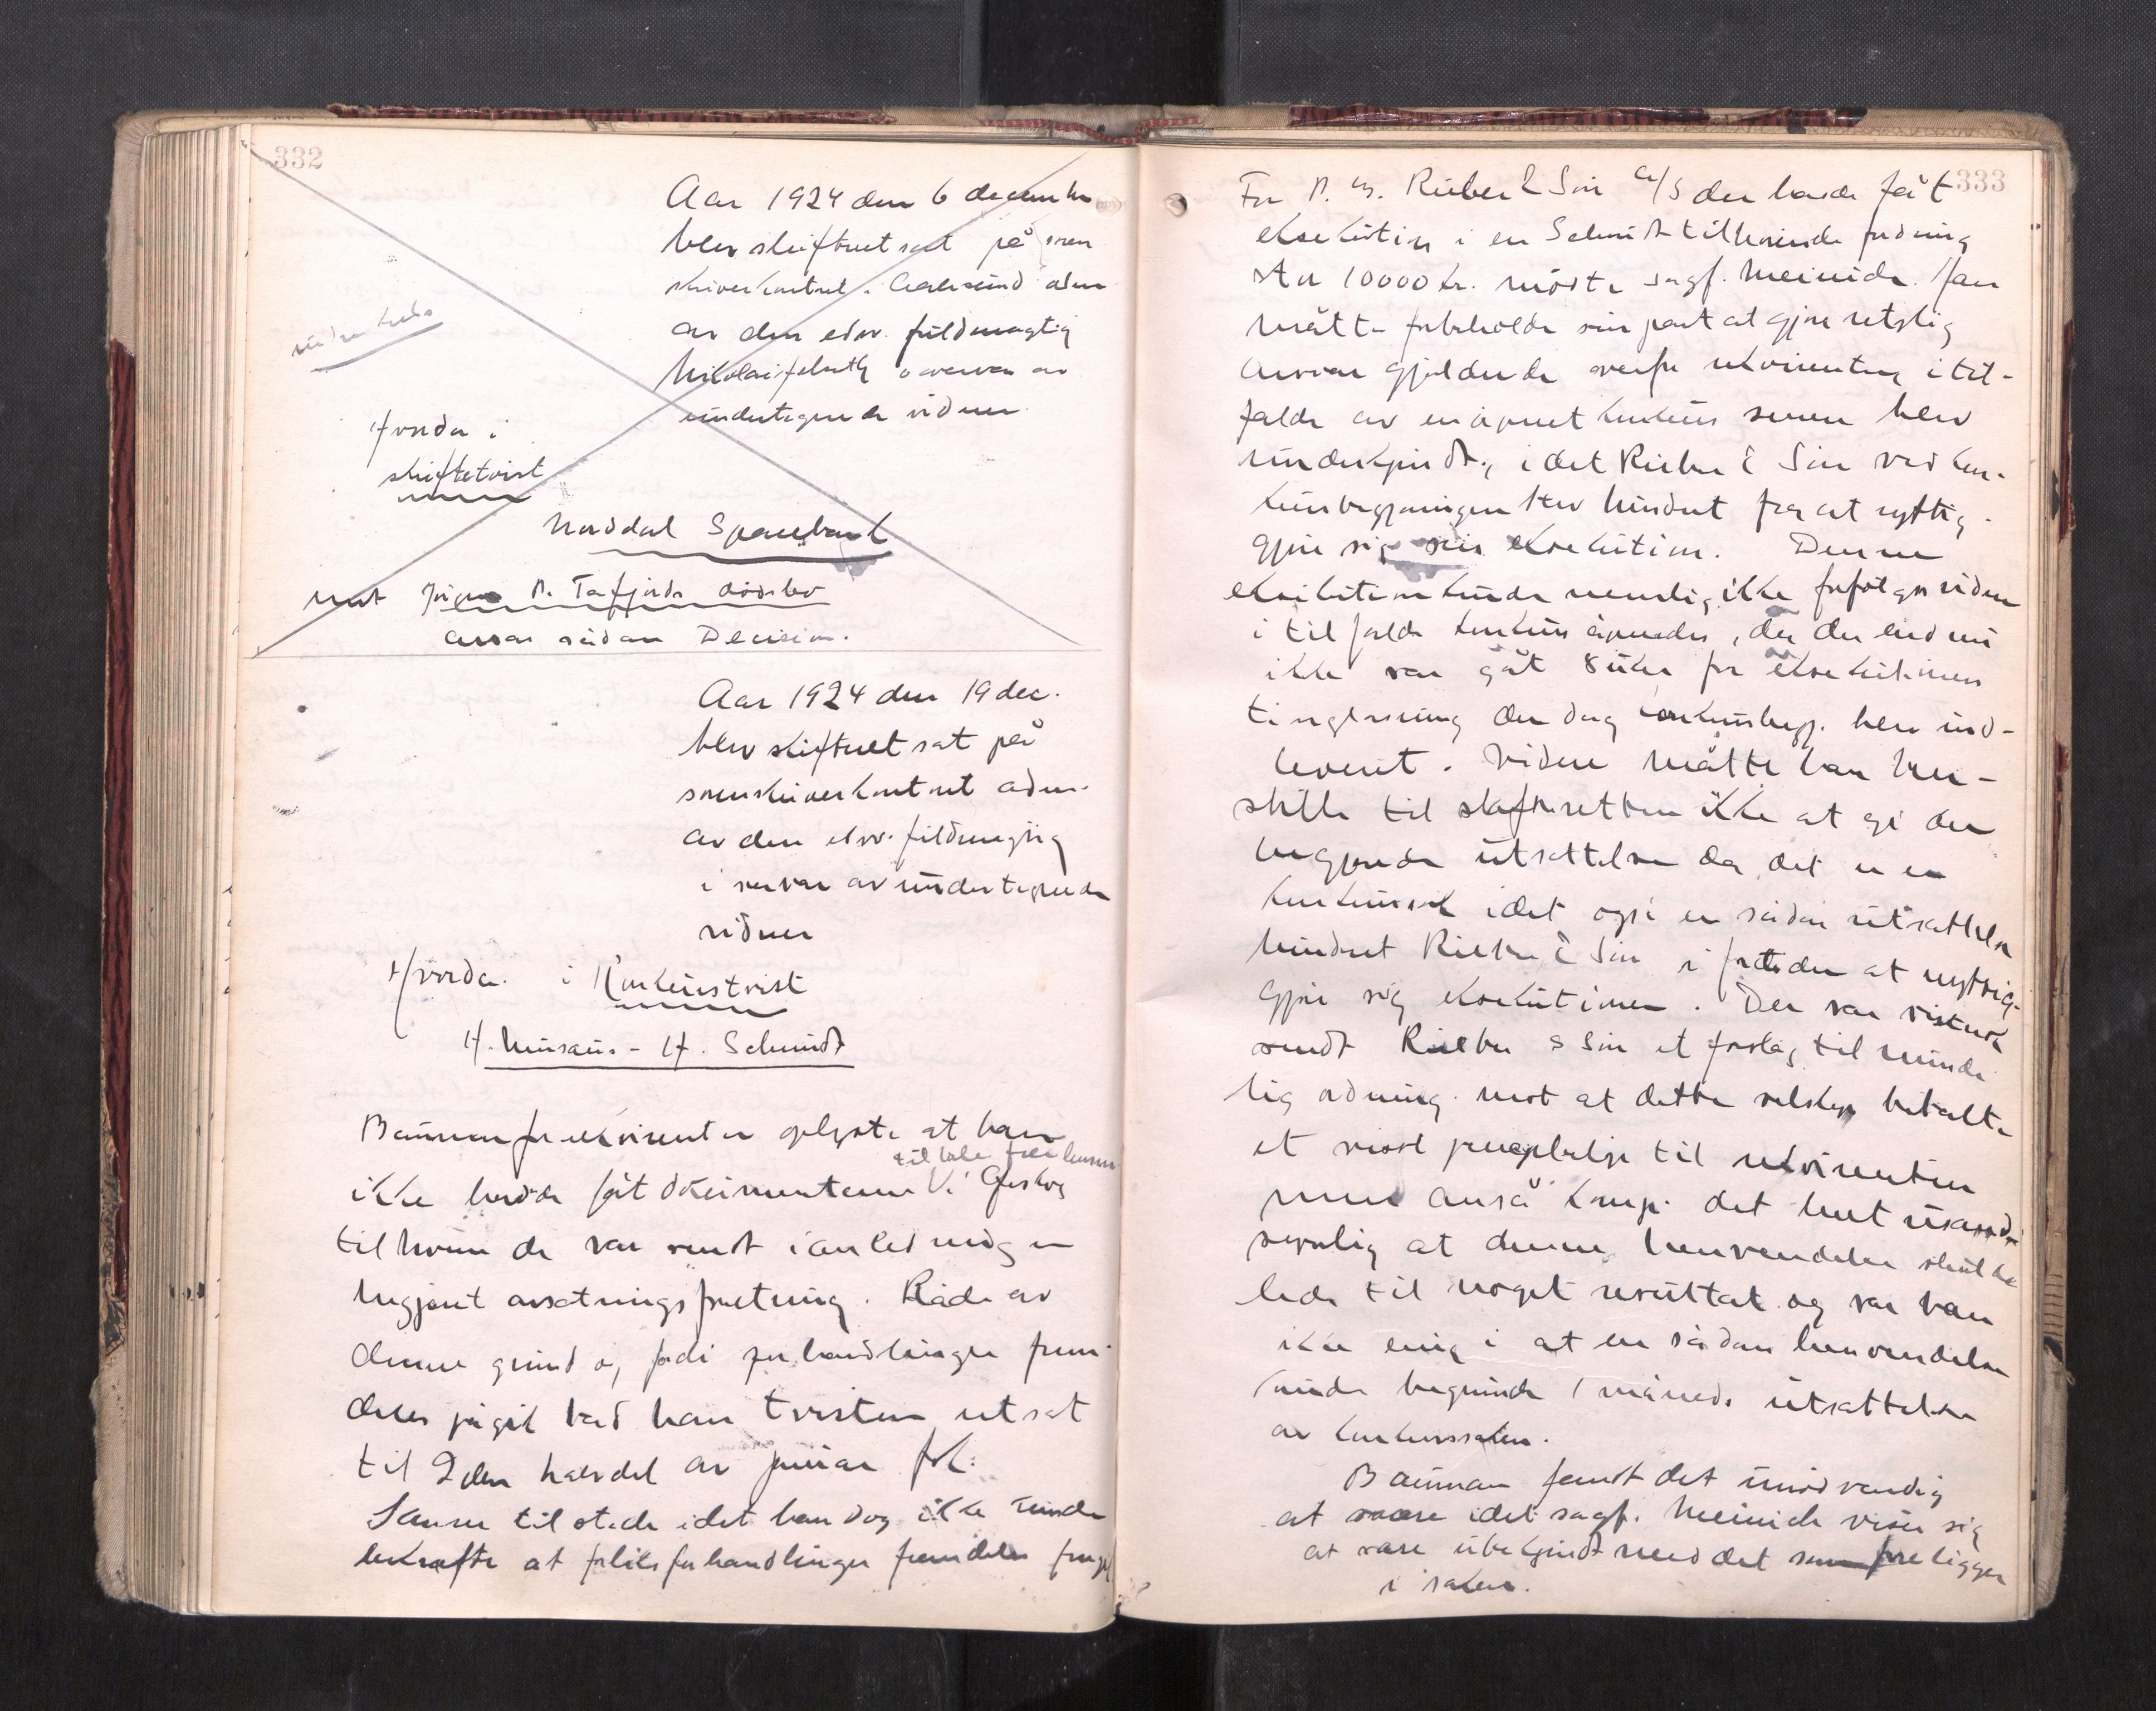 332
Aar 1924 den 6 december
blev skifteret sat på soren
skriverkontoret i Aalesund adm
av den edsv. fuldmægtig
Nikolai overvær av
undertegnede vidner
Hvorda i
skiftetvist
Norddal Sparebank
mot Jørgen P. Tafjords dødsbo
avsas sådan Decision.
Aar 1924 den 19 dec.
blev skifteret sat på
sorenskriverkontoret adm.
av den edsv. fuldmægtig
i nærvær av undertegnede
vidner
Hvorda. i Konkurstvist
H. Musæus - H. Schmidt
Bauman for rekvirenten oplyste at han
tilbake fra lensm
ikke hadde fåt dokumentene i Giskø
til hvem de var sendt i anledning en
begjært avsetningsforretning. Både av
denne grund og fordi forhandlinger frem-
deles pågik bad han tvisten utsat
til 2den halvdel av januar førk.
Sanne tilstede idet han dog ikke kunde
bekræfte at forliksforhandlinger fremdeles foregik
333
For P. G. Rieber & Søn A/S der havde fåt
eksekution i en Schmidt tilhørende fordring
stor 10000 kr. møtte sagf. Meinich. Han
måtte forbeholde sin part at gjøre retslig
ansvar gjældende overfor rekvirenten i til-
fælde av en åpnet konkurs senere blev
underkjendt, idet Rieber & Søn ved kon-
kursbegjæringen blev hindret fra at nyttig-
gjøre sig sin eksekution. Denne
eksekution kunde nemlig ikke forfølges videre
i tilfælde konkurs åpnedes, da der endnu
ikke var gåt 8 uker fra eksekutionens
tinglysning den dag konkursbegj. blev ind-
leveret. Videre måtte han hen-
stille til skifteretten ikke at gi den
begjærede utsættelse da det er en
konkurssak idet også en sådan utsættelse
hindret Rieber & Søn i fremdeles at nyttig-
gjøre sig eksekutionen. Der var vistnok
sendt Rieber & Søn et forslag til minde
lig ordning mot at dette selskap betalte
et visst pengebeløp til rekvirenten
men anså komp. det helt usand-
synlig at denne henvendelse skulde
lede til noget resultat og var han
ikke enig i at en sådan henvendelse
kunde begrunde 1 måneds utsættelse
av konkurssaken.
Bauman fandt det unødvendig
at svare idet sagf. Meinich viser sig
at være ubekjendt med det som foreligger
i saken.